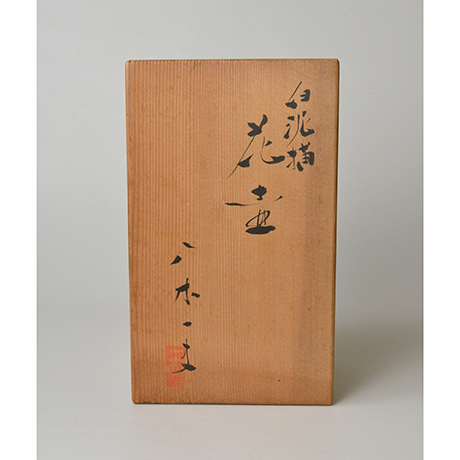 白泥描
花壺
八木一夫